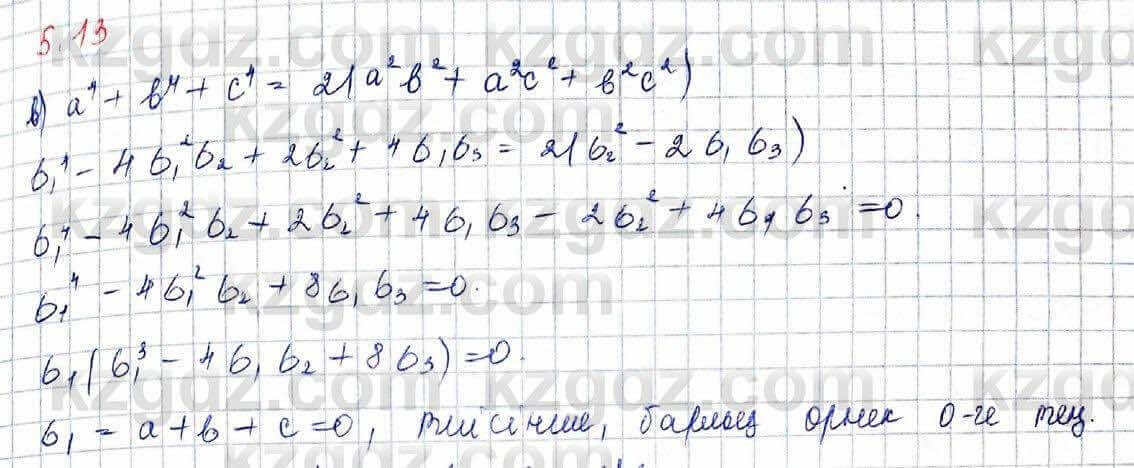 5.13
в) a⁴ + b⁴ + c⁴ = 2(a²b² + a²c² + b²c²)
б₁⁴ - 4б₁²б₂ + 2б₂² + 4б₁б₃ = 2(б₂² - 2б₁б₃)
б₁⁴ - 4б₁²б₂ + 2б₂² + 4б₁б₃ - 2б₂² + 4б₁б₃ = 0.
б₁⁴ - 4б₁²б₂ + 8б₁б₃ = 0.
б₁(б₁³ - 4б₁б₂ + 8б₃) = 0.
б₁ = a + b + c = 0, тиісінше, барлық өрнек 0-ге тең.
kzgdz.com